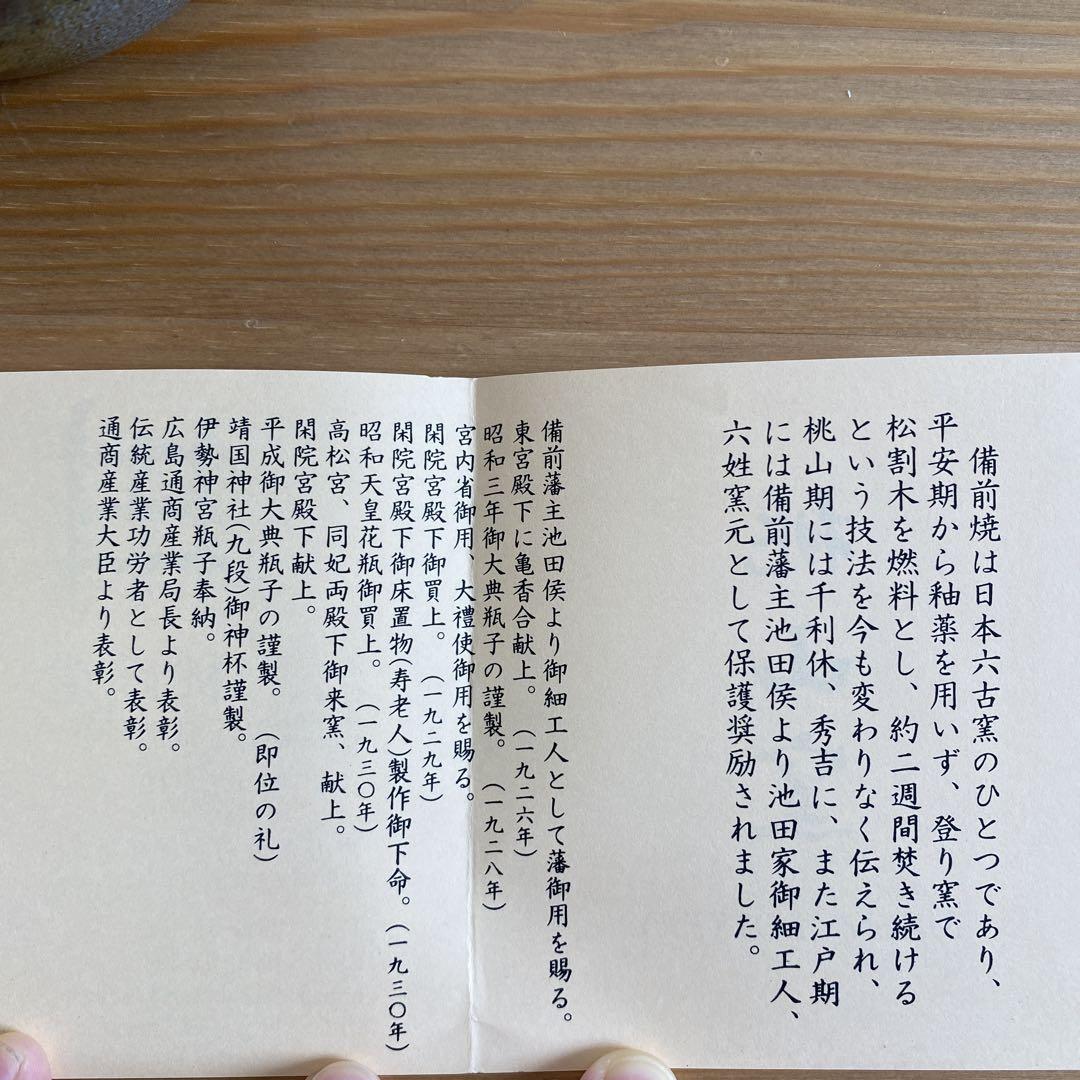 備前焼は日本六古窯のひとつであり、
平安期から釉薬を用いず、登り窯で
松割木を燃料とし、約二週間焚き続ける
という技法を今も変わりなく伝えられ、
桃山期には千利休、秀吉に、また江戸期
には備前藩主池田侯より池田家御細工人、
六姓窯元として保護奨励されました。
備前藩主池田侯より御細工人として藩御用を賜る。
東宮殿下に亀香合献上。（一九二六年）
昭和三年御大典瓶子の謹製。（一九二八年）
宮内省御用、大禮使御用を賜る。
閑院宮殿下御買上。（一九二九年）
閑院宮殿下御床置物(寿老人)製作御下命。（一九三〇年）
昭和天皇花瓶御買上。（一九三〇年）
高松宮、同妃両殿下御来窯、献上。
閑院宮殿下献上。
平成御大典瓶子の謹製。（即位の礼）
靖国神社(九段)御神杯謹製。
伊勢神宮瓶子奉納。
広島通商産業局長より表彰。
伝統産業功労者として表彰。
通商産業大臣より表彰。